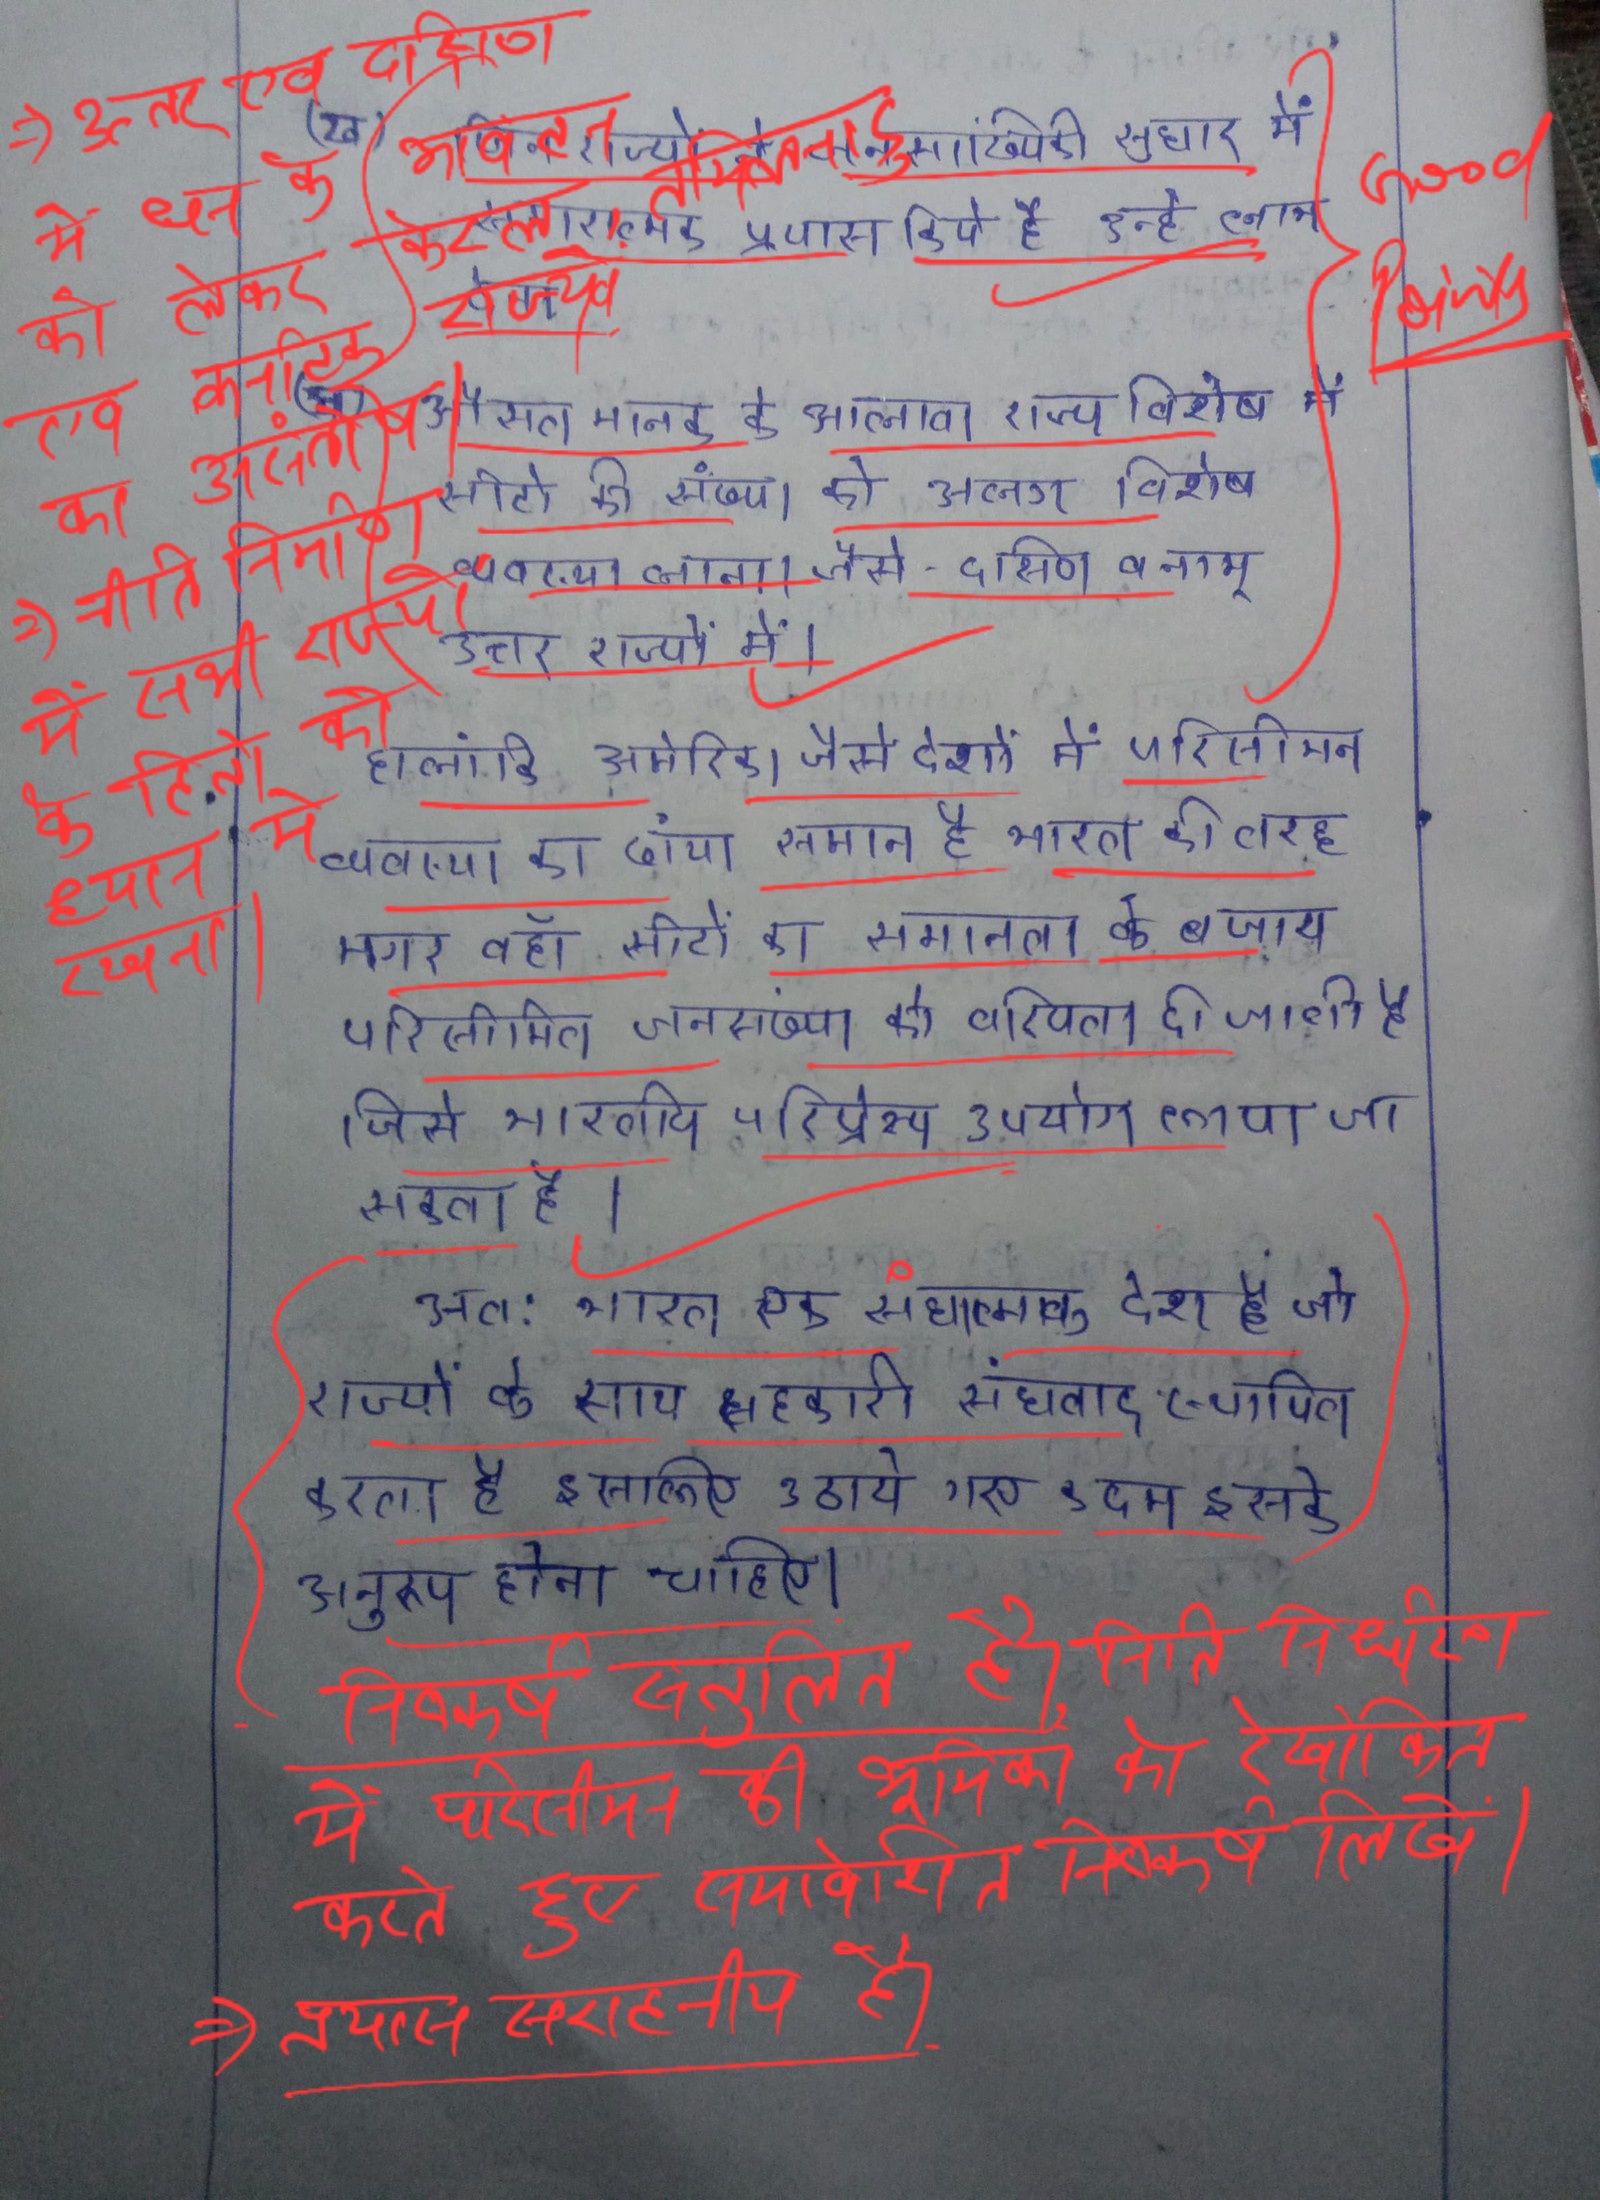 ⇒ उत्तर एवं दक्षिण
में धन के
आवंटन
को लेकर
तमिलनाडु
केरल
एवं कर्नाटक
का असंतोष।
⇒ नीति निर्माण
में सभी राज्यों
के हितों को
ध्यान में
रखना।
(ख) जिन राज्यों ने जनसांख्यिकी सुधार में
प्रयास किये है उन्हे लाभ
Good
Points
औसत मानक के आलावा राज्य विशेष में
सीटो की संख्या को अलग विशेष
व्यवस्था लाना। जैसे - दक्षिण बनाम्
उत्तर राज्यों में।
हालांकि अमेरिका जैसे देशों में परिसीमन
व्यवस्था का ढांचा समान है भारत की तरह
मगर वहाँ सीटों का समानता के बजाय
परिसीमित जनसंख्या को वरियता दी जाती है
जिसे भारतीय परिप्रेक्ष्य उपयोग लाया जा
सकता है।
अतः भारत एक संघात्मक देश है जो
राज्यों के साथ सहकारी संघवाद स्थापित
करता है इसलिए उठाये गए कदम इसके
अनुरूप होना चाहिए।
निष्कर्ष संतुलित है, निति निर्धारण
में परिसीमन की भूमिका को रेखांकित
करते हुए समावेशित निष्कर्ष लिखें।
⇒ प्रयास सराहनीय है।